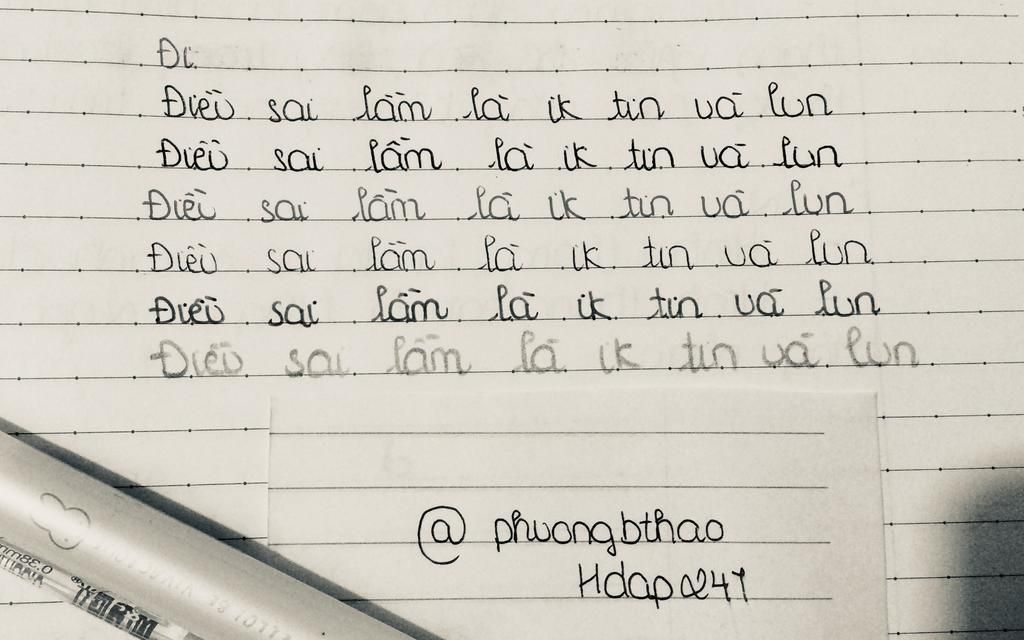 Đi
Điều sai lầm là ik tin và lun
Điều sai lầm là ik tin và lun
Điều sai lầm là ik tin và lun
Điều sai lầm là ik tin và lun
Điều sai lầm là ik tin và lun
Điều sai lầm là ik tin và lun
@ phuongbthao
0.38mm